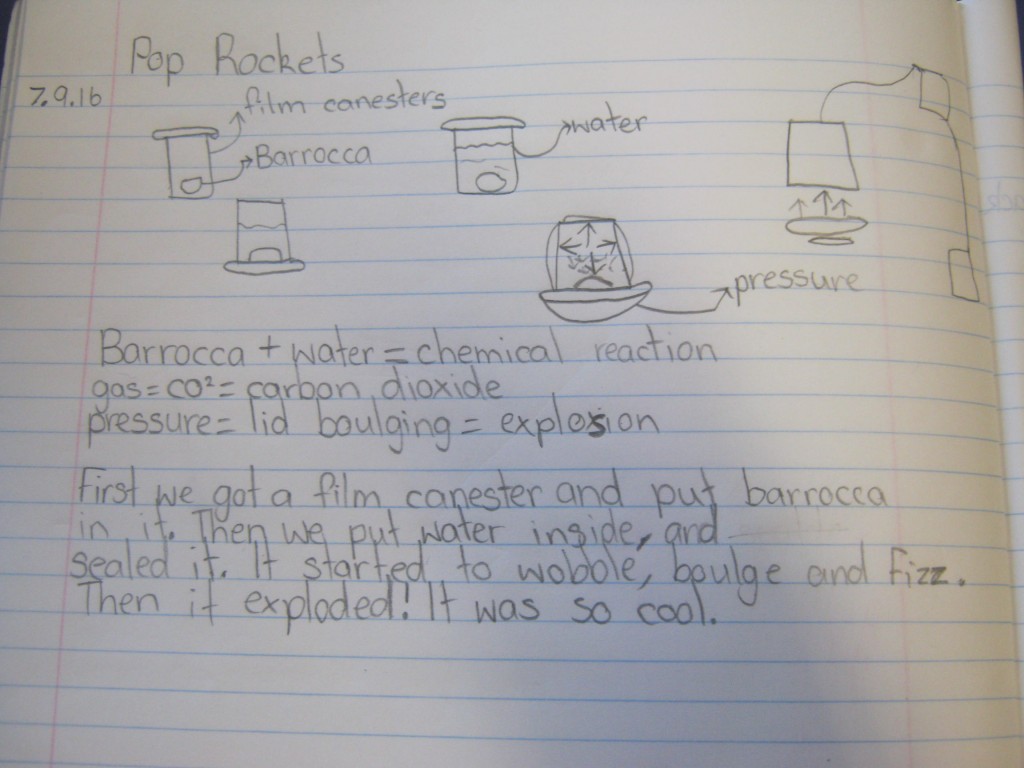 Pop Rockets
7.9.16
film canesters
Barrocca
water
pressure
Barrocca + water = chemical reaction
gas = CO² = carbon dioxide
pressure = lid boulging = explosion
First we got a film canester and put barrocca
in it. Then we put water inside, and
sealed it. It started to wobble, boulge and fizz.
Then it exploded! It was so cool.